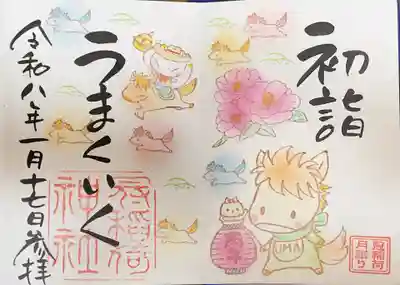 初詣
うまくいく
冠稲荷
神社
令和八年一月十七日参拝
UMA
冠稲荷
月参り